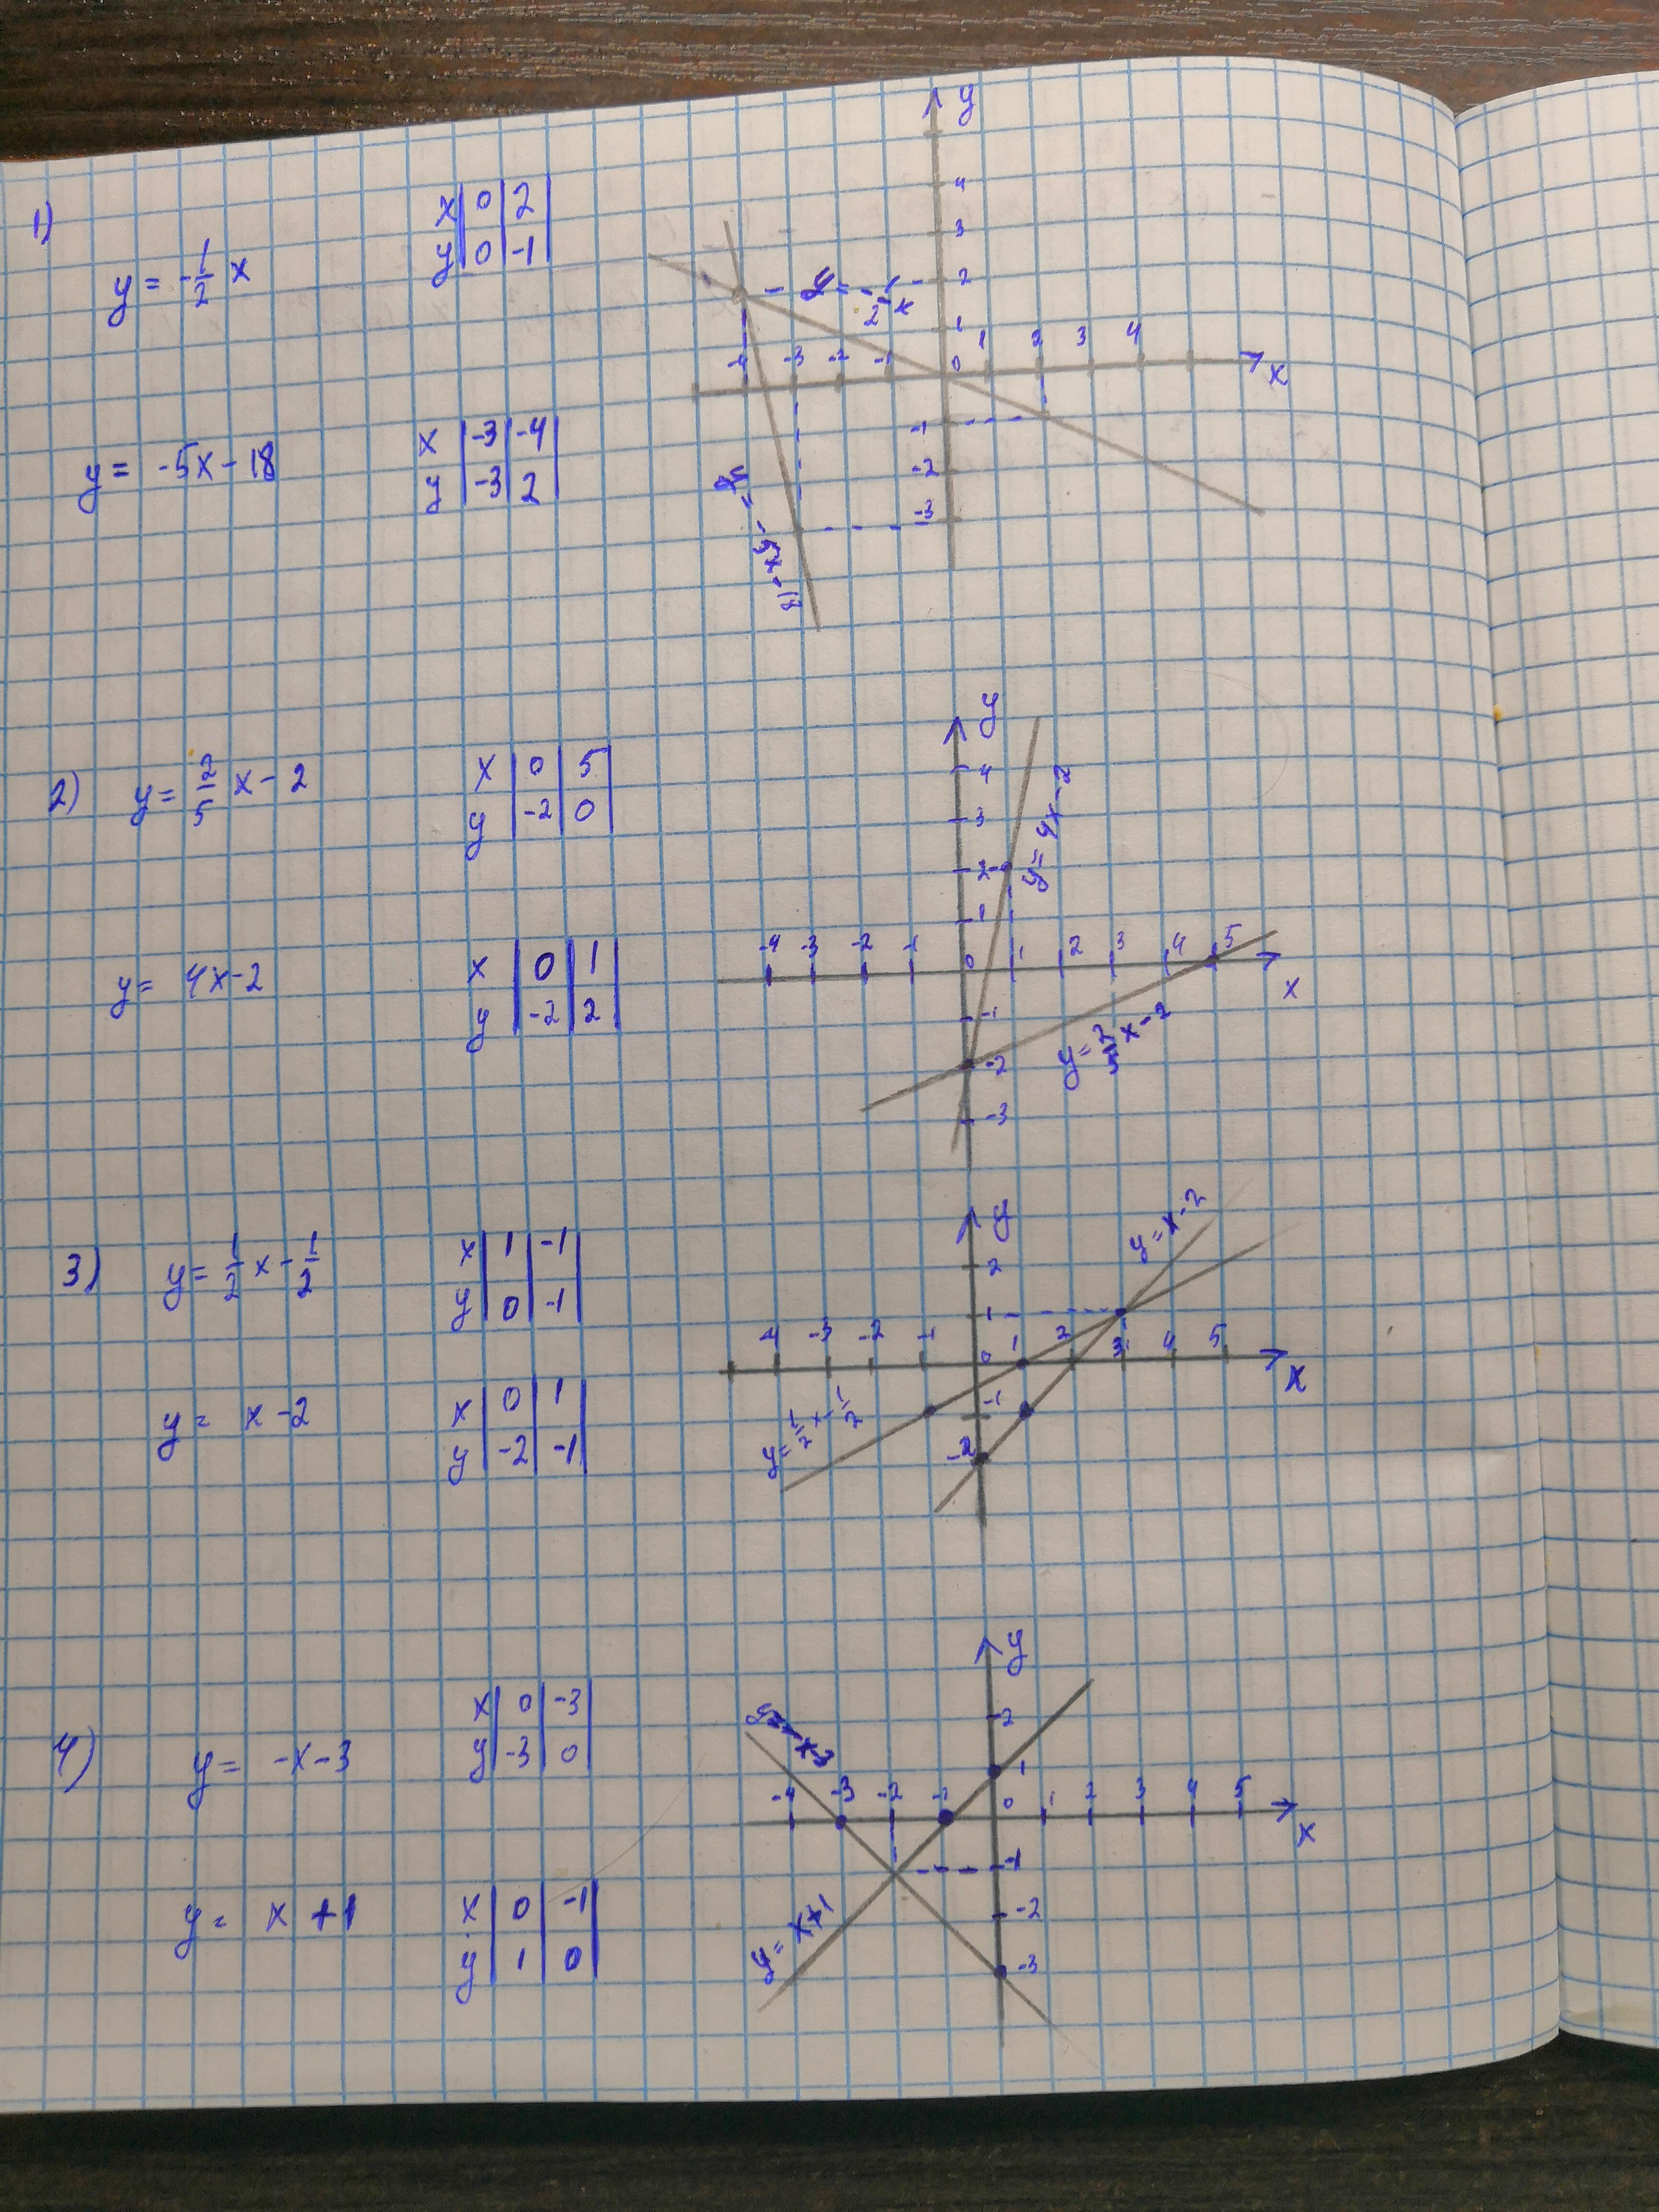 1)
y = -1/2 x
x | 0 | 2
y | 0 | -1
y = -5x - 18
x | -3 | -4
y | -3 | 2
y
4
3
2
1
-4 -3 -2 -1 0 1 2 3 4
x
-1
-2
-3
y = -1/2 x
y = -5x - 18
2)
y = 2/5 x - 2
x | 0 | 5
y | -2 | 0
y = 4x - 2
x | 0 | 1
y | -2 | 2
y
4
3
2
1
-4 -3 -2 -1 0 1 2 3 4 5
x
-1
-2
-3
y = 4x - 2
y = 2/5 x - 2
3)
y = 1/2 x - 1/2
x | 1 | -1
y | 0 | -1
y = x - 2
x | 0 | 1
y | -2 | -1
y
2
1
-4 -3 -2 -1 0 1 2 3 4 5
x
-1
-2
y = x - 2
y = 1/2 x - 1/2
4)
y = -x - 3
x | 0 | -3
y | -3 | 0
y = x + 1
x | 0 | -1
y | 1 | 0
y
2
1
-4 -3 -2 -1 0 1 2 3 4 5
x
-1
-2
-3
y = x + 1